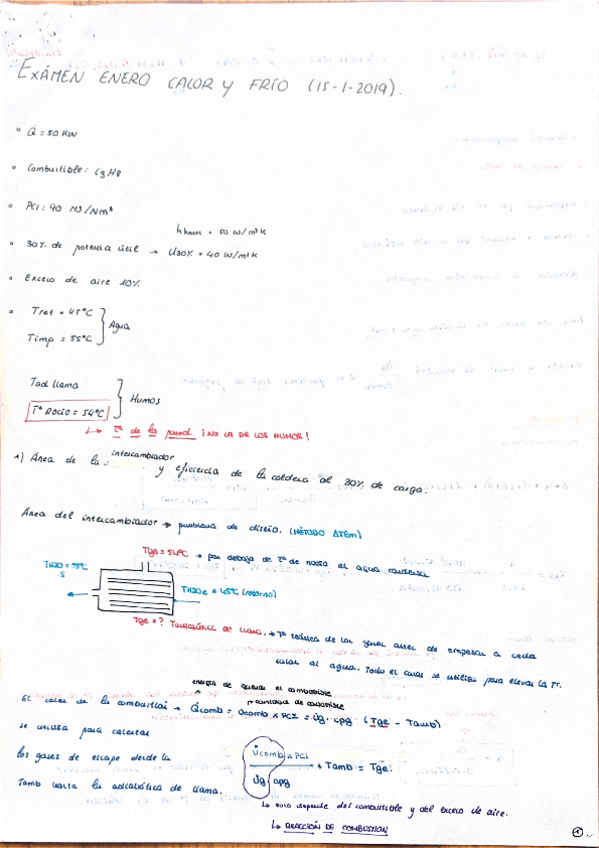 EXÁMEN ENERO CALOR Y FRÍO (15-1-2019).
• Q̇ = 50 KW
• Combustible: C3H8
• PCI: 90 MJ/Nm³
h humos = 50 W/m²K
• 30% de potencia útil → U30% = 40 W/m²K
• Exceso de aire 10%
• Tret = 45°C
Timp = 55°C
Agua
Tad llama
Tª Rocío = 54°C
Humos
↳ Tª de la pared ¡NO LA DE LOS HUMOS!
1) Área de la intercambiador y eficiencia de la caldera al 30% de carga.
Área del intercambiador → problema de diseño. (MÉTODO ΔTem)
Tgs = 54°C → por debajo de Tª de rocío el agua condensa
TH2O s = 55°C
TH2O e = 45°C (retorno)
Tge = ? T adiabática de llama. → Tª teórica de los gases antes de empezar a ceder
calor al agua. Todo el calor se utiliza para elevar la Tª.
energía de quemar el combustible
El calor de la combustión → Q̇comb = V̇comb × PCI = V̇g · cpg (Tge - Tamb)
se utiliza para calentar
los gases de escape desde la
Tamb hasta la adiabática de llama.
V̇comb × PCI
V̇g · cpg
+ Tamb = Tge;
↳ esto depende del combustible y del exceso de aire.
↳ REACCIÓN DE COMBUSTION
1